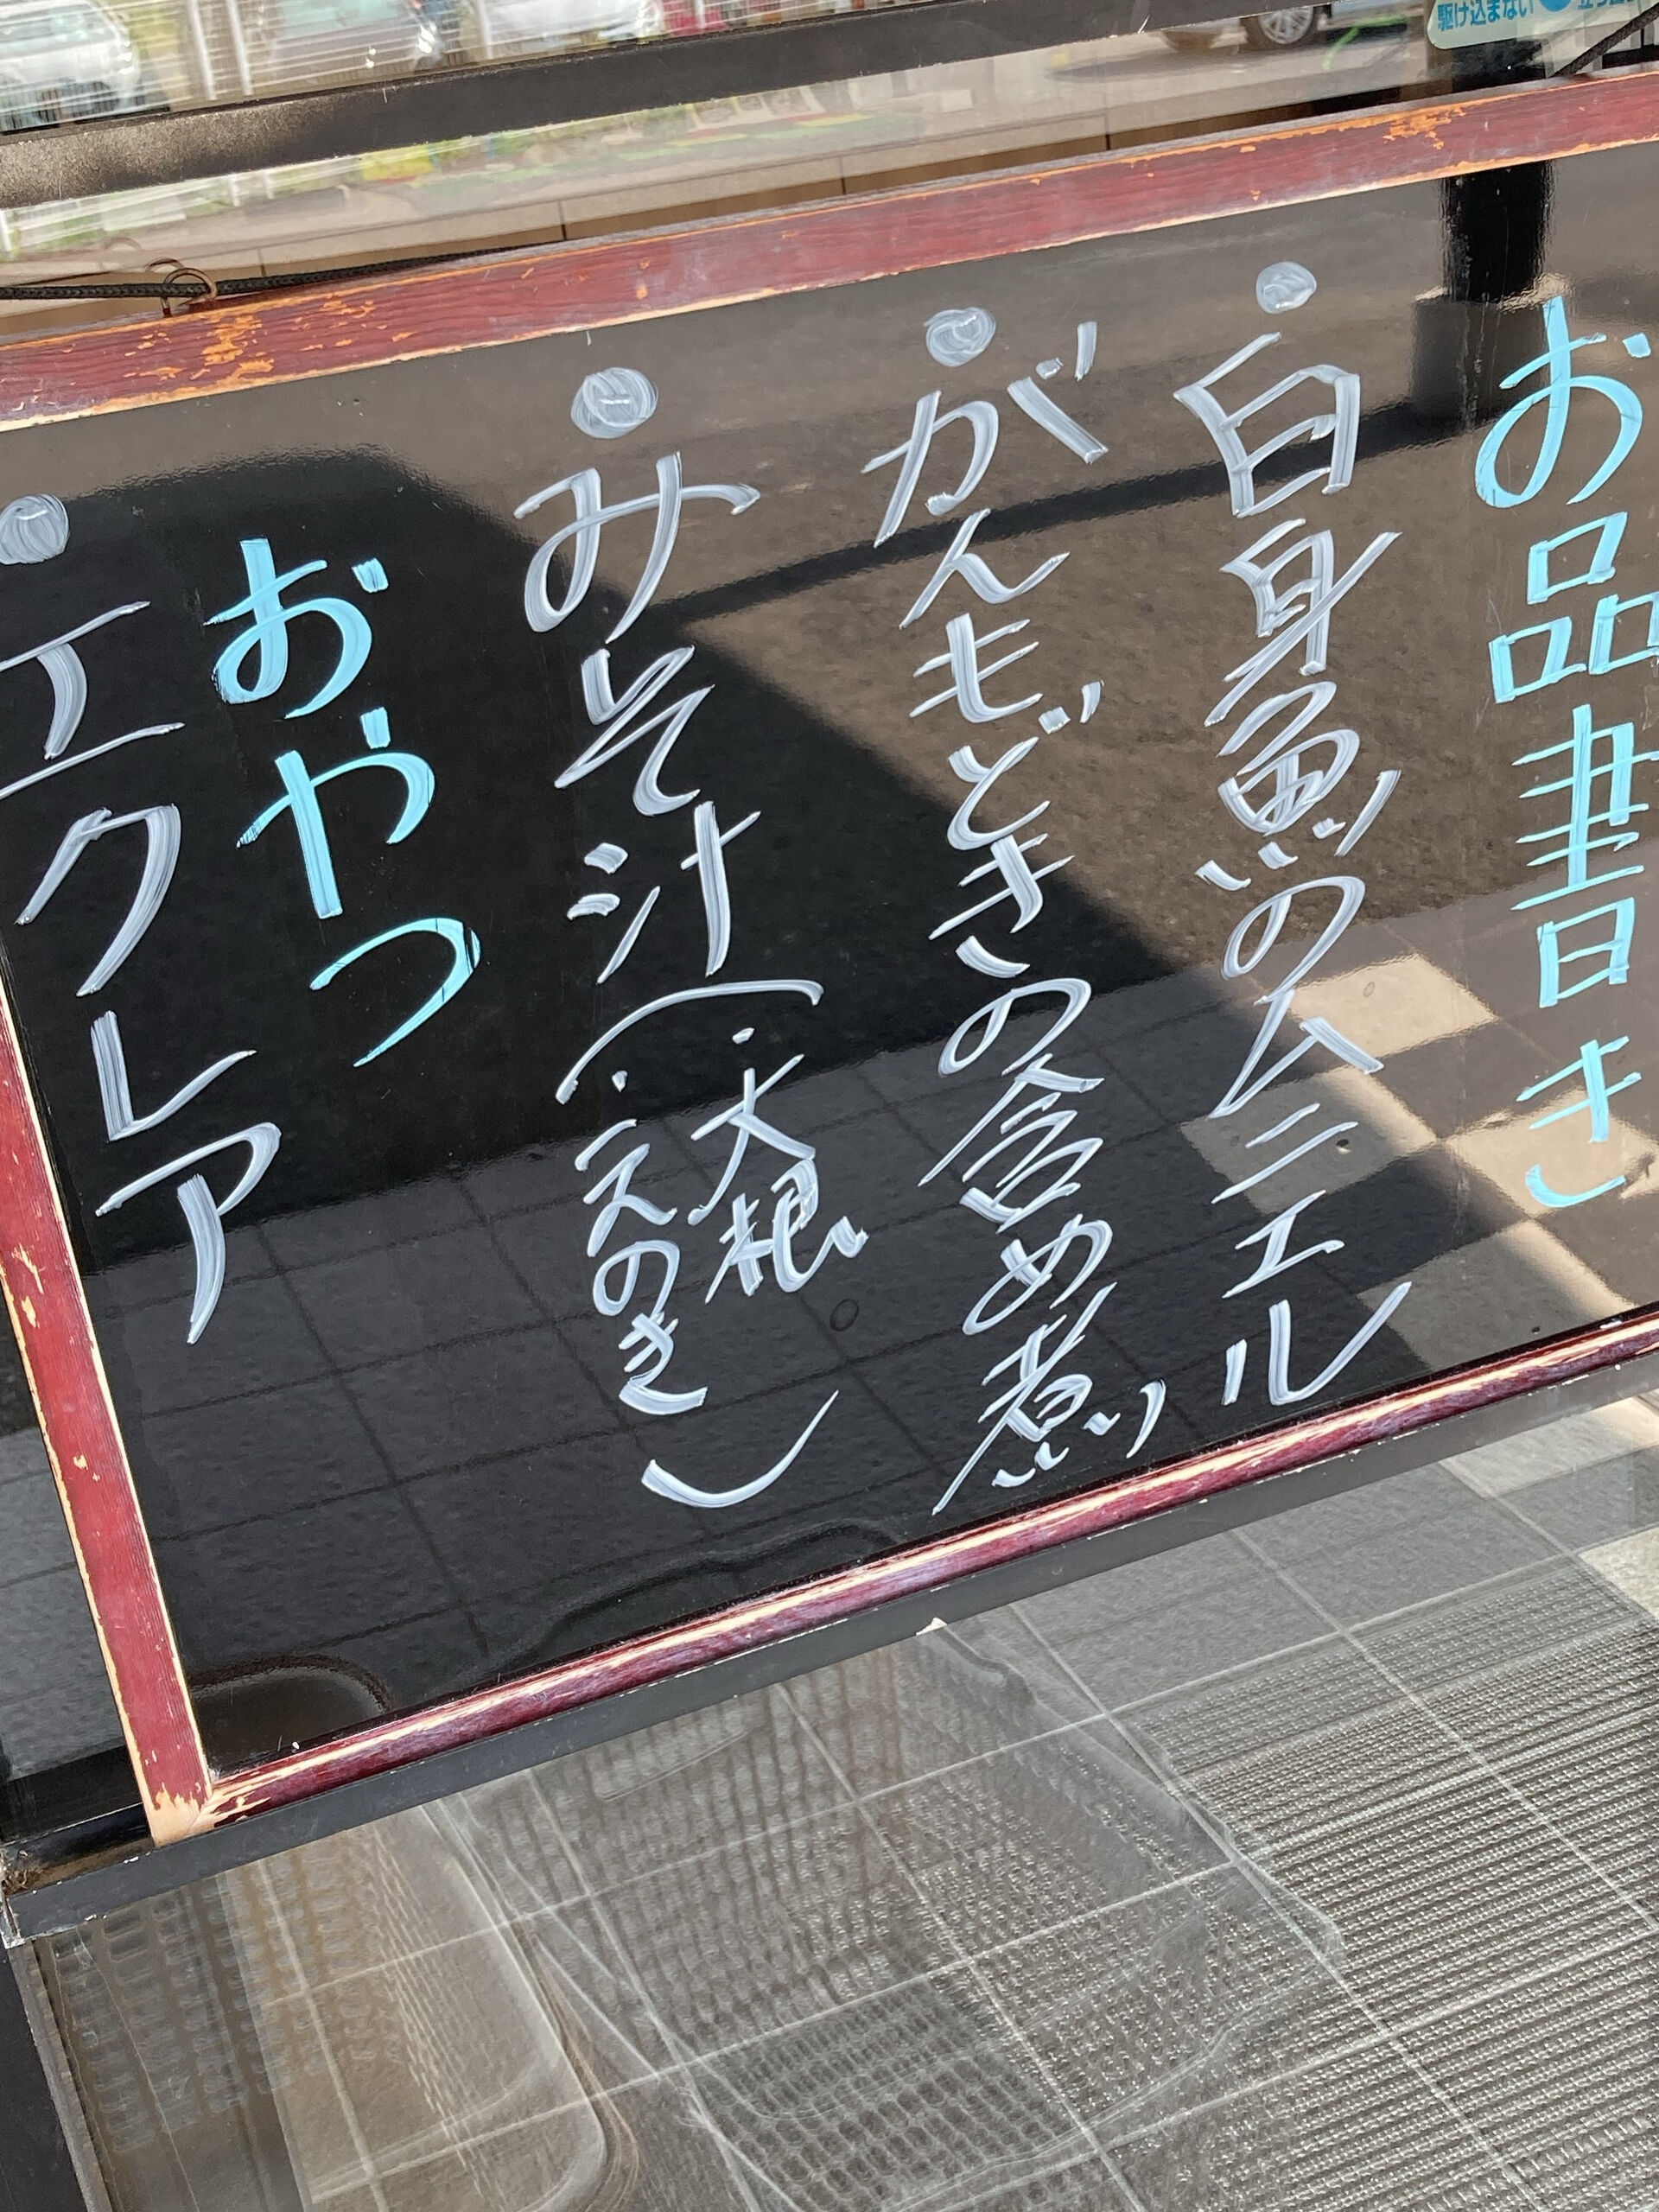 駆け込まない
お品書き
白身魚のムニエル
がんもどきの含め煮
みそ汁(・大根
・えのき)
おやつ
エクレア